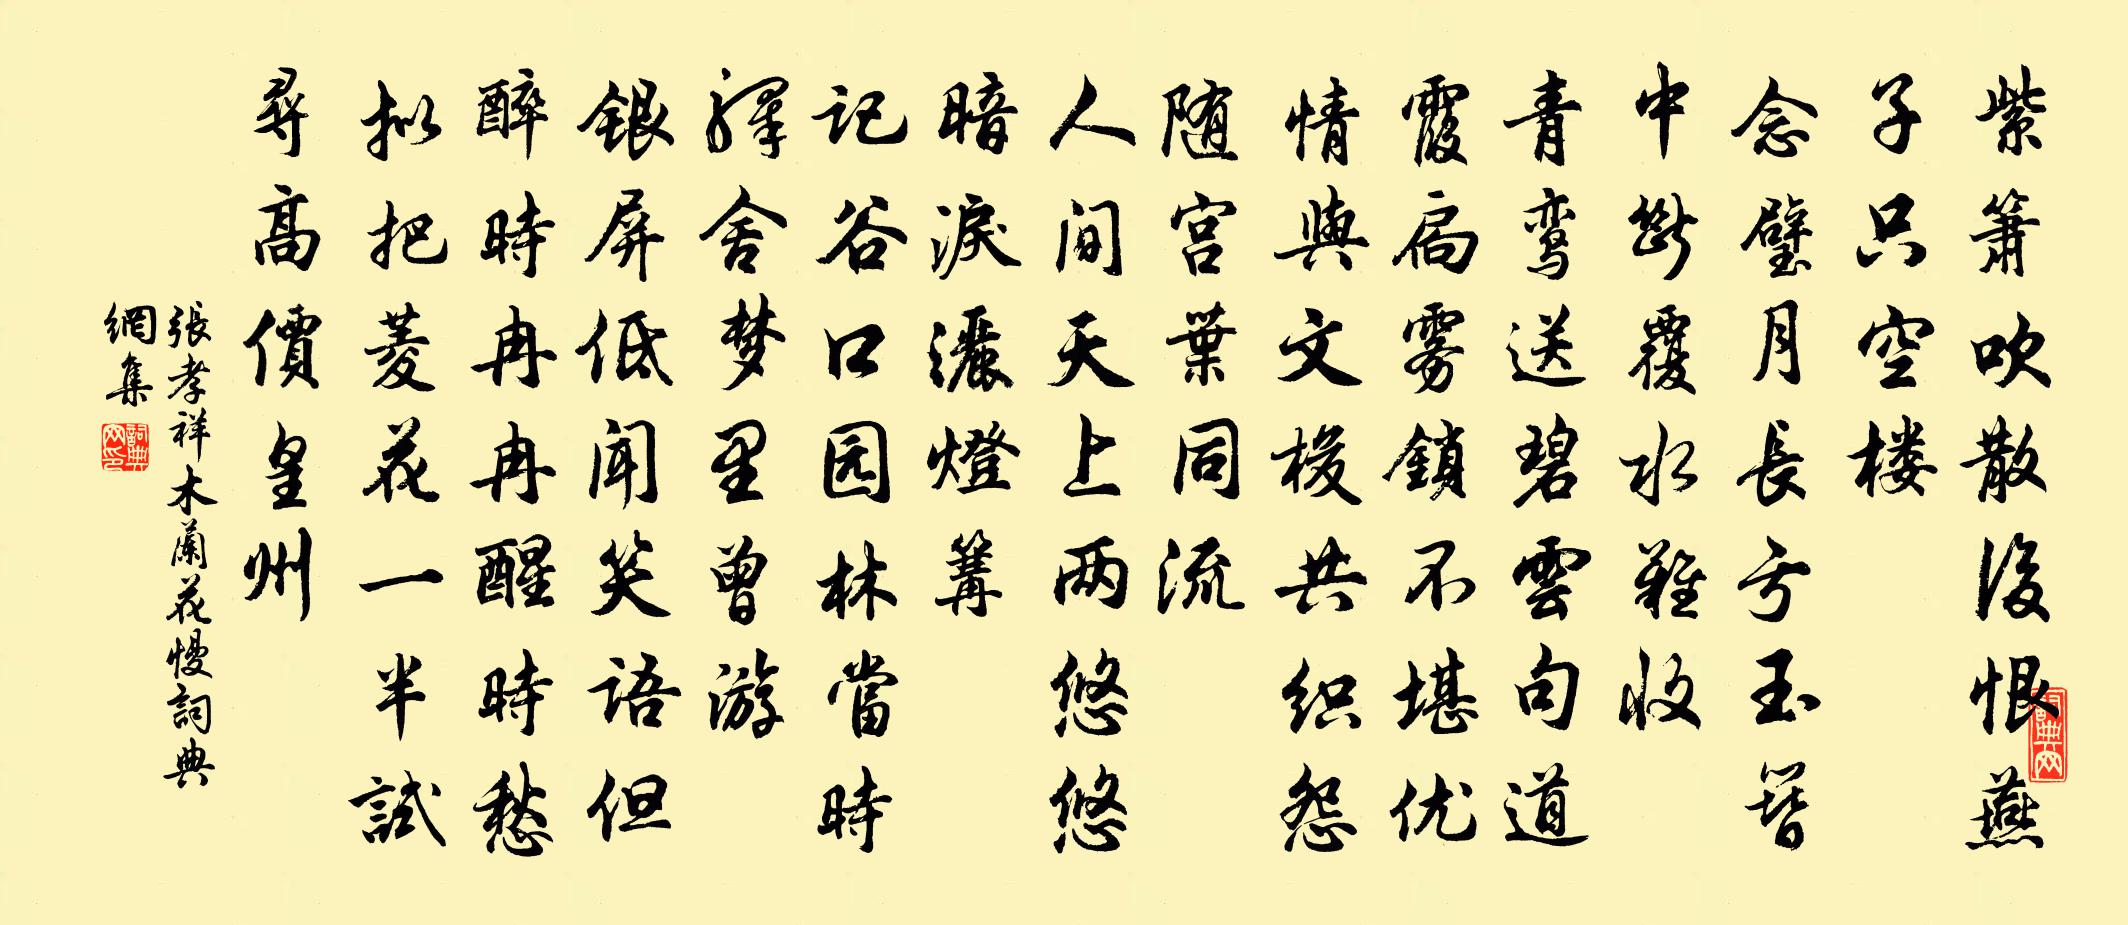 紫箫吹散後恨燕
子只空楼
念璧月长亏玉簪
中断覆水难收
青鸾送碧雲句道
霞扃雾鎖不堪优
情與文梭共织怨
随宫葉同流
人间天上两悠悠
暗淚灑燈篝
记谷口园林當時
驛舍梦里曾游
銀屏低闻笑语但
醉時冉冉醒時愁
拟把菱花一半試
尋高價皇州
張孝祥木蘭花慢詞典
網集